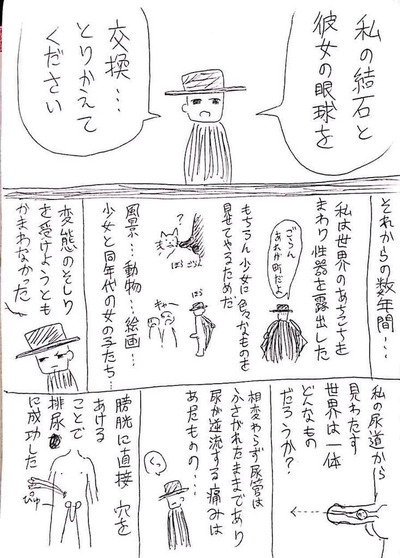 私の結石と
彼女の眼球を
交換…
とりかえて
ください
それからの数年間…
私は世界のあちこちを
まわり性器を露出した
ごらん
あれが町だよ
もちろん少女に色々なものを
見せてやるためだ
?
ほう
ほう
キャー
風景…動物…絵画…
少女と同年代の女の子たち…
変態のそしり
を受けようとも
かまわなかった
私の尿道から
見わたす
世界は一体
どんなもの
だろうか?
相変わらず尿管は
ふさがれたままであり
尿が逆流する痛みは
あたものの…
くっ
膀胱に直接穴を
あける
ことで
排尿
に成功した
ぴゅー